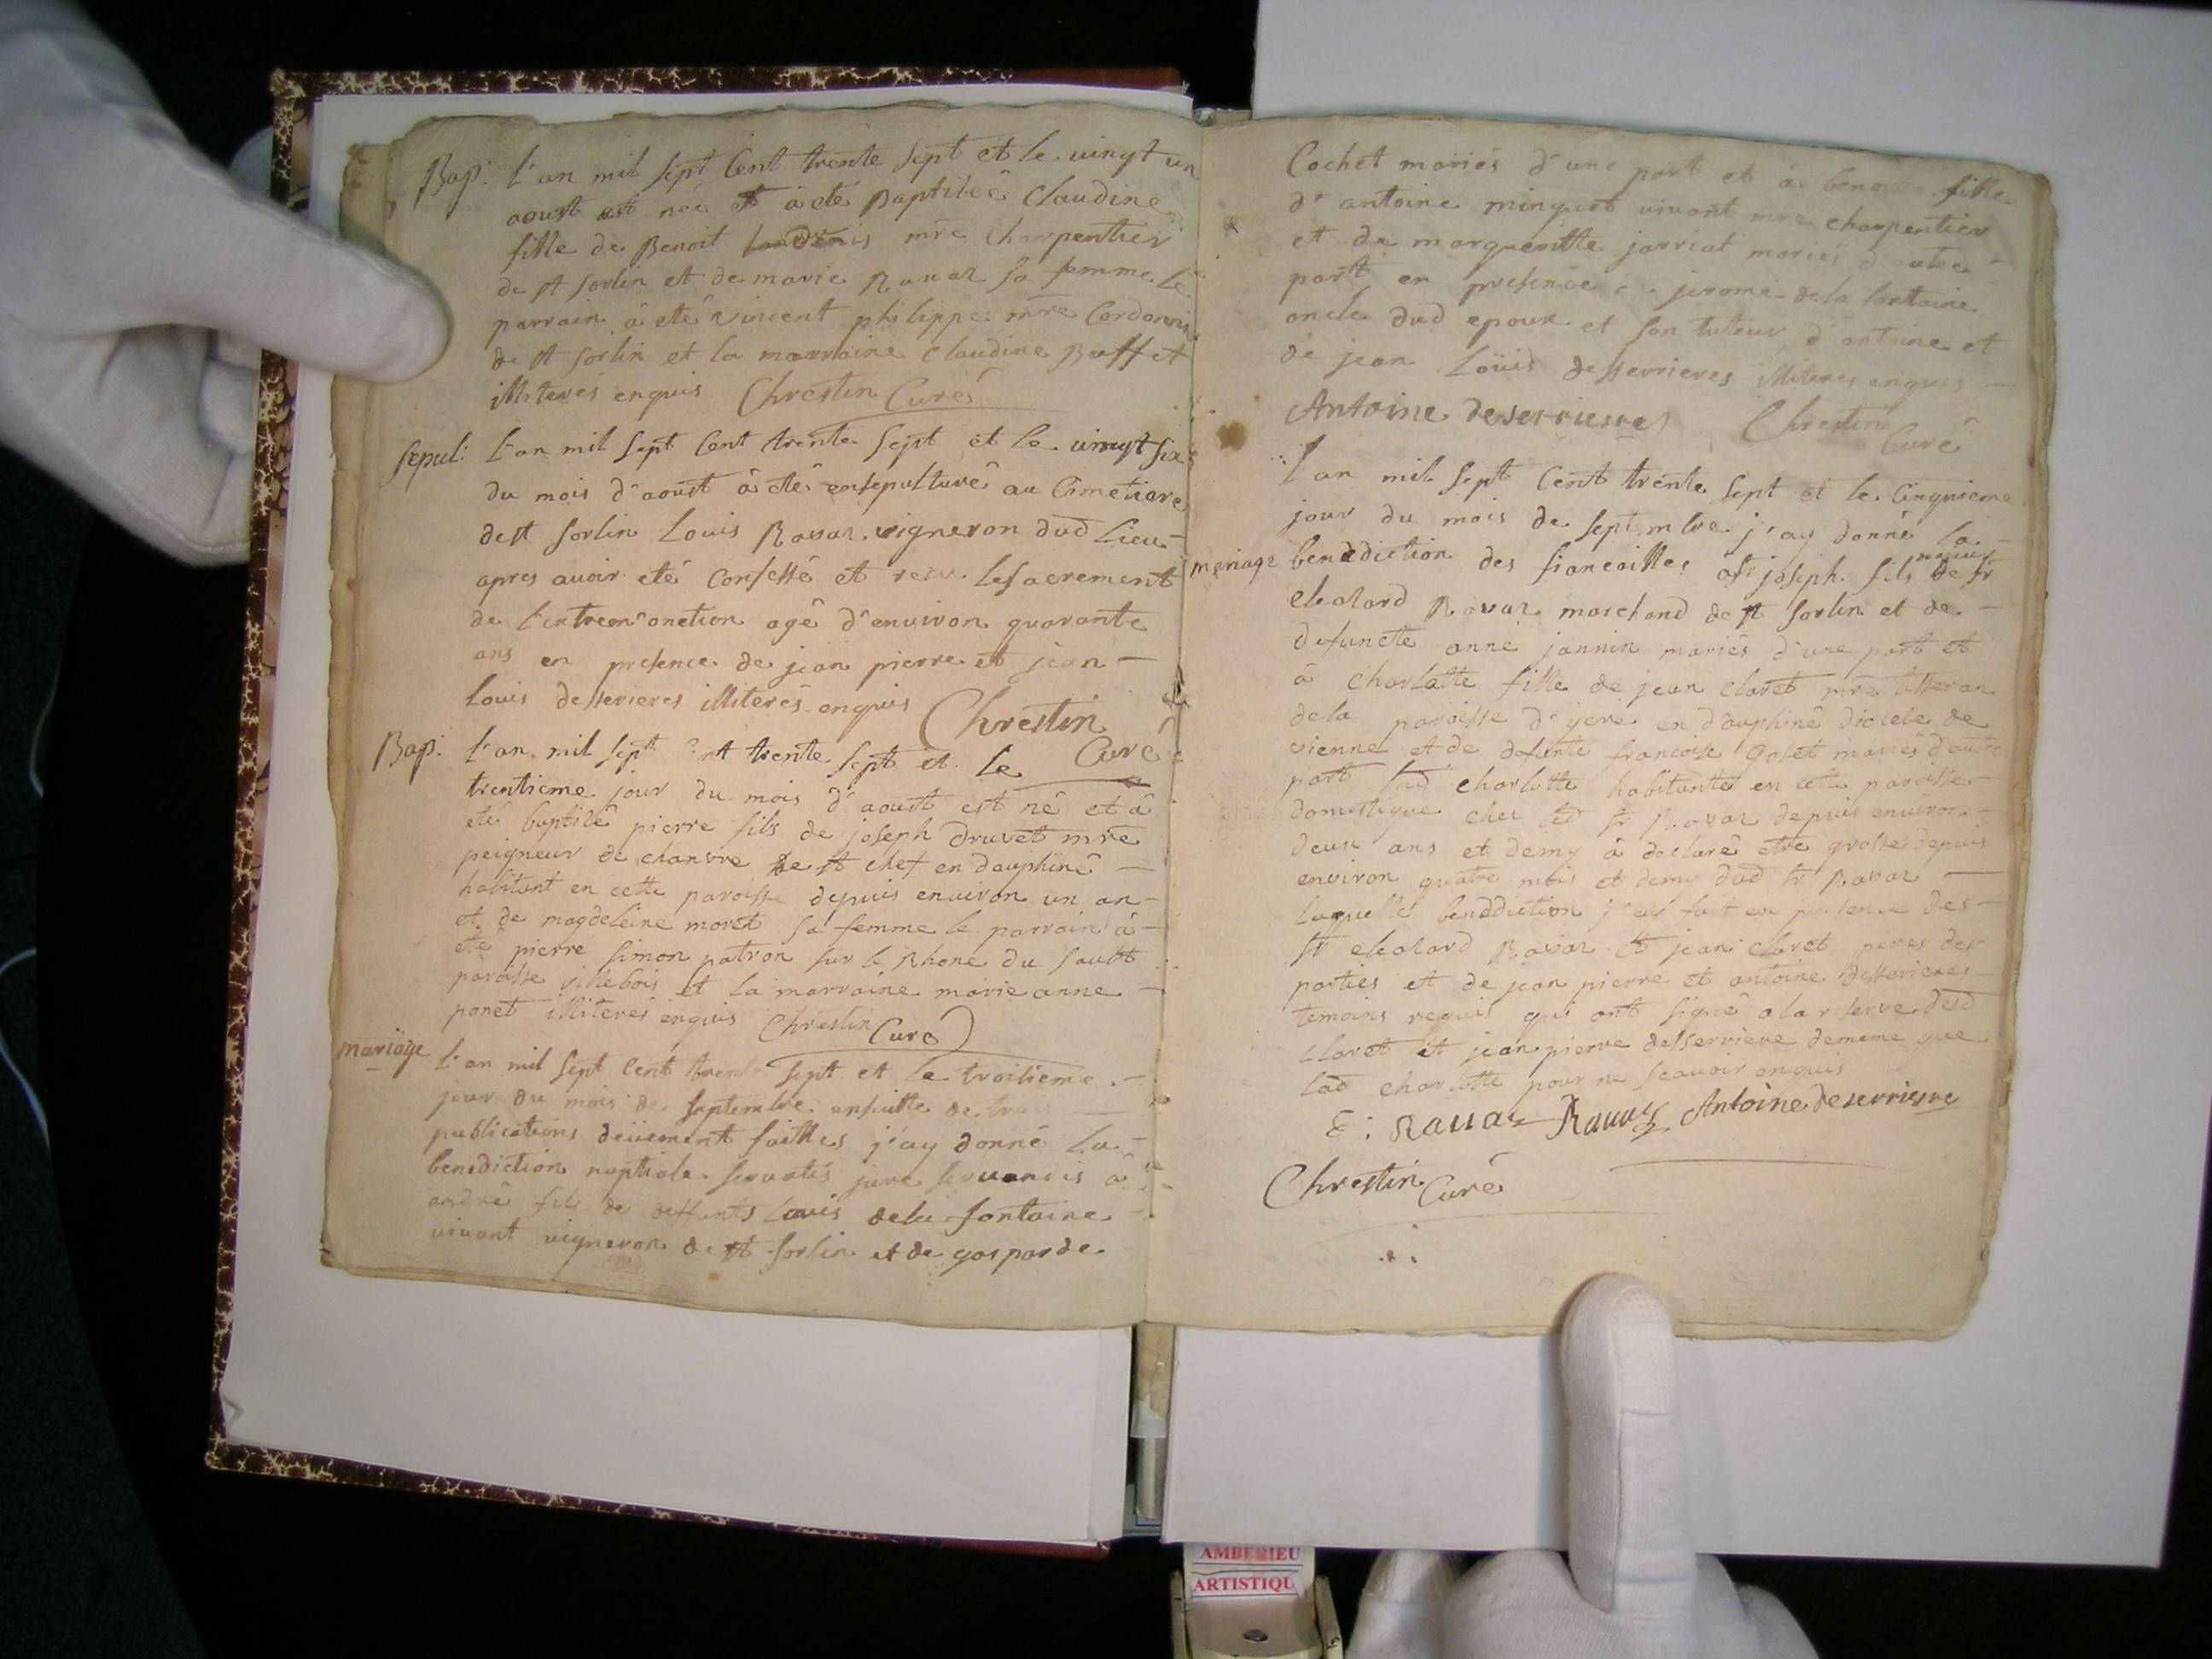 Bap: L'an mil sept Cent trente sept et le vingt un
aoust est née et à eté Baptisée Claudine
fille de Benoit mre Charpentier
de st sorlin et de marie Ravaz sa femme le
parrain à eté Vincent philippe mre Cordonnie
de st sorlin et la marraine Claudine Buffet
illiterés enquis Chrestin Curé
sepul: L'an mil sept Cent trente sept et le vingt six
du mois d'aoust à eté ensepulturé au Cimetiere
de st sorlin Louis Ravaz vigneron dud Lieu
apres avoir eté Confessé et recu le sacrement
de l'extrem'onction agé d'environ quarante
ans en presence de jean pierre et jean
louis desserieres illiterés enquis Chrestin
Curé
Bap: L'an mil sept Cent trente sept et le
trentieme jour du mois d'aoust est né et à
eté baptisé pierre fils de joseph druvet mre
peigneur de chanvre de st chef en dauphiné
habitant en cette paroisse depuis environ un an
et de magdeleine moret sa femme le parrain à
eté pierre simon patron sur le Rhone du sault
paroisse villebois et la marraine marie anne
ponet illiterés enquis Chrestin Curé
mariage L'an mil sept Cent trente sept et le troisieme
jour du mois de septembre ensuitte de trois
publications deüement faittes j'ay donné la
benediction nuptiale servatis jure servandis à
andré fils de deffunts Louis dela fontaine
vivant vigneron de st sorlin et de gasparde
Cochet mariés d'une part et à benoite fille
d'antoine minguet vivant mre charpentier
et de margueritte jarriat mariés d'autre
part en presence de jerome dela fontaine
oncle dud epoux et son tuteur d'antoine et
de jean Loüis desserrieres illiteres enquis
Antoine deserriere Chrestin
Curé
L'an mil sept Cent trente sept et le Cinquieme
jour du mois de septembre j'ay donné la
mariage benediction des fiancailles a sr joseph fils majeur de sr
eleazard Ravaz marchand de st sorlin et de
defuncte anne jannin mariés d'une part et
à Charlotte fille de jean Claret mre tisseran
dela paroisse d'jere en dauphiné diocese de
vienne et de defunte francoise goset mariés d'autre
part lad charlotte habitante en cette paroisse
domestique chez led sr Ravaz depuis environ
deux ans et demy à declaré etre grosse depuis
environ quatre mois et demy dud sr Ravaz
laquelle benediction j'ay fait en presence des
sr eleazard Ravaz et jean claret peres des
parties et de jean pierre et antoine desserieres
temoins requis qui ont signé a la reserve desd
Claret et jean pierre desserriere de meme que
lad charlotte pour ne scavoir enquis
E: Ravaz Ravaz Antoine deserriere
Chrestin Curé
AMBERIEU
ARTISTIQU